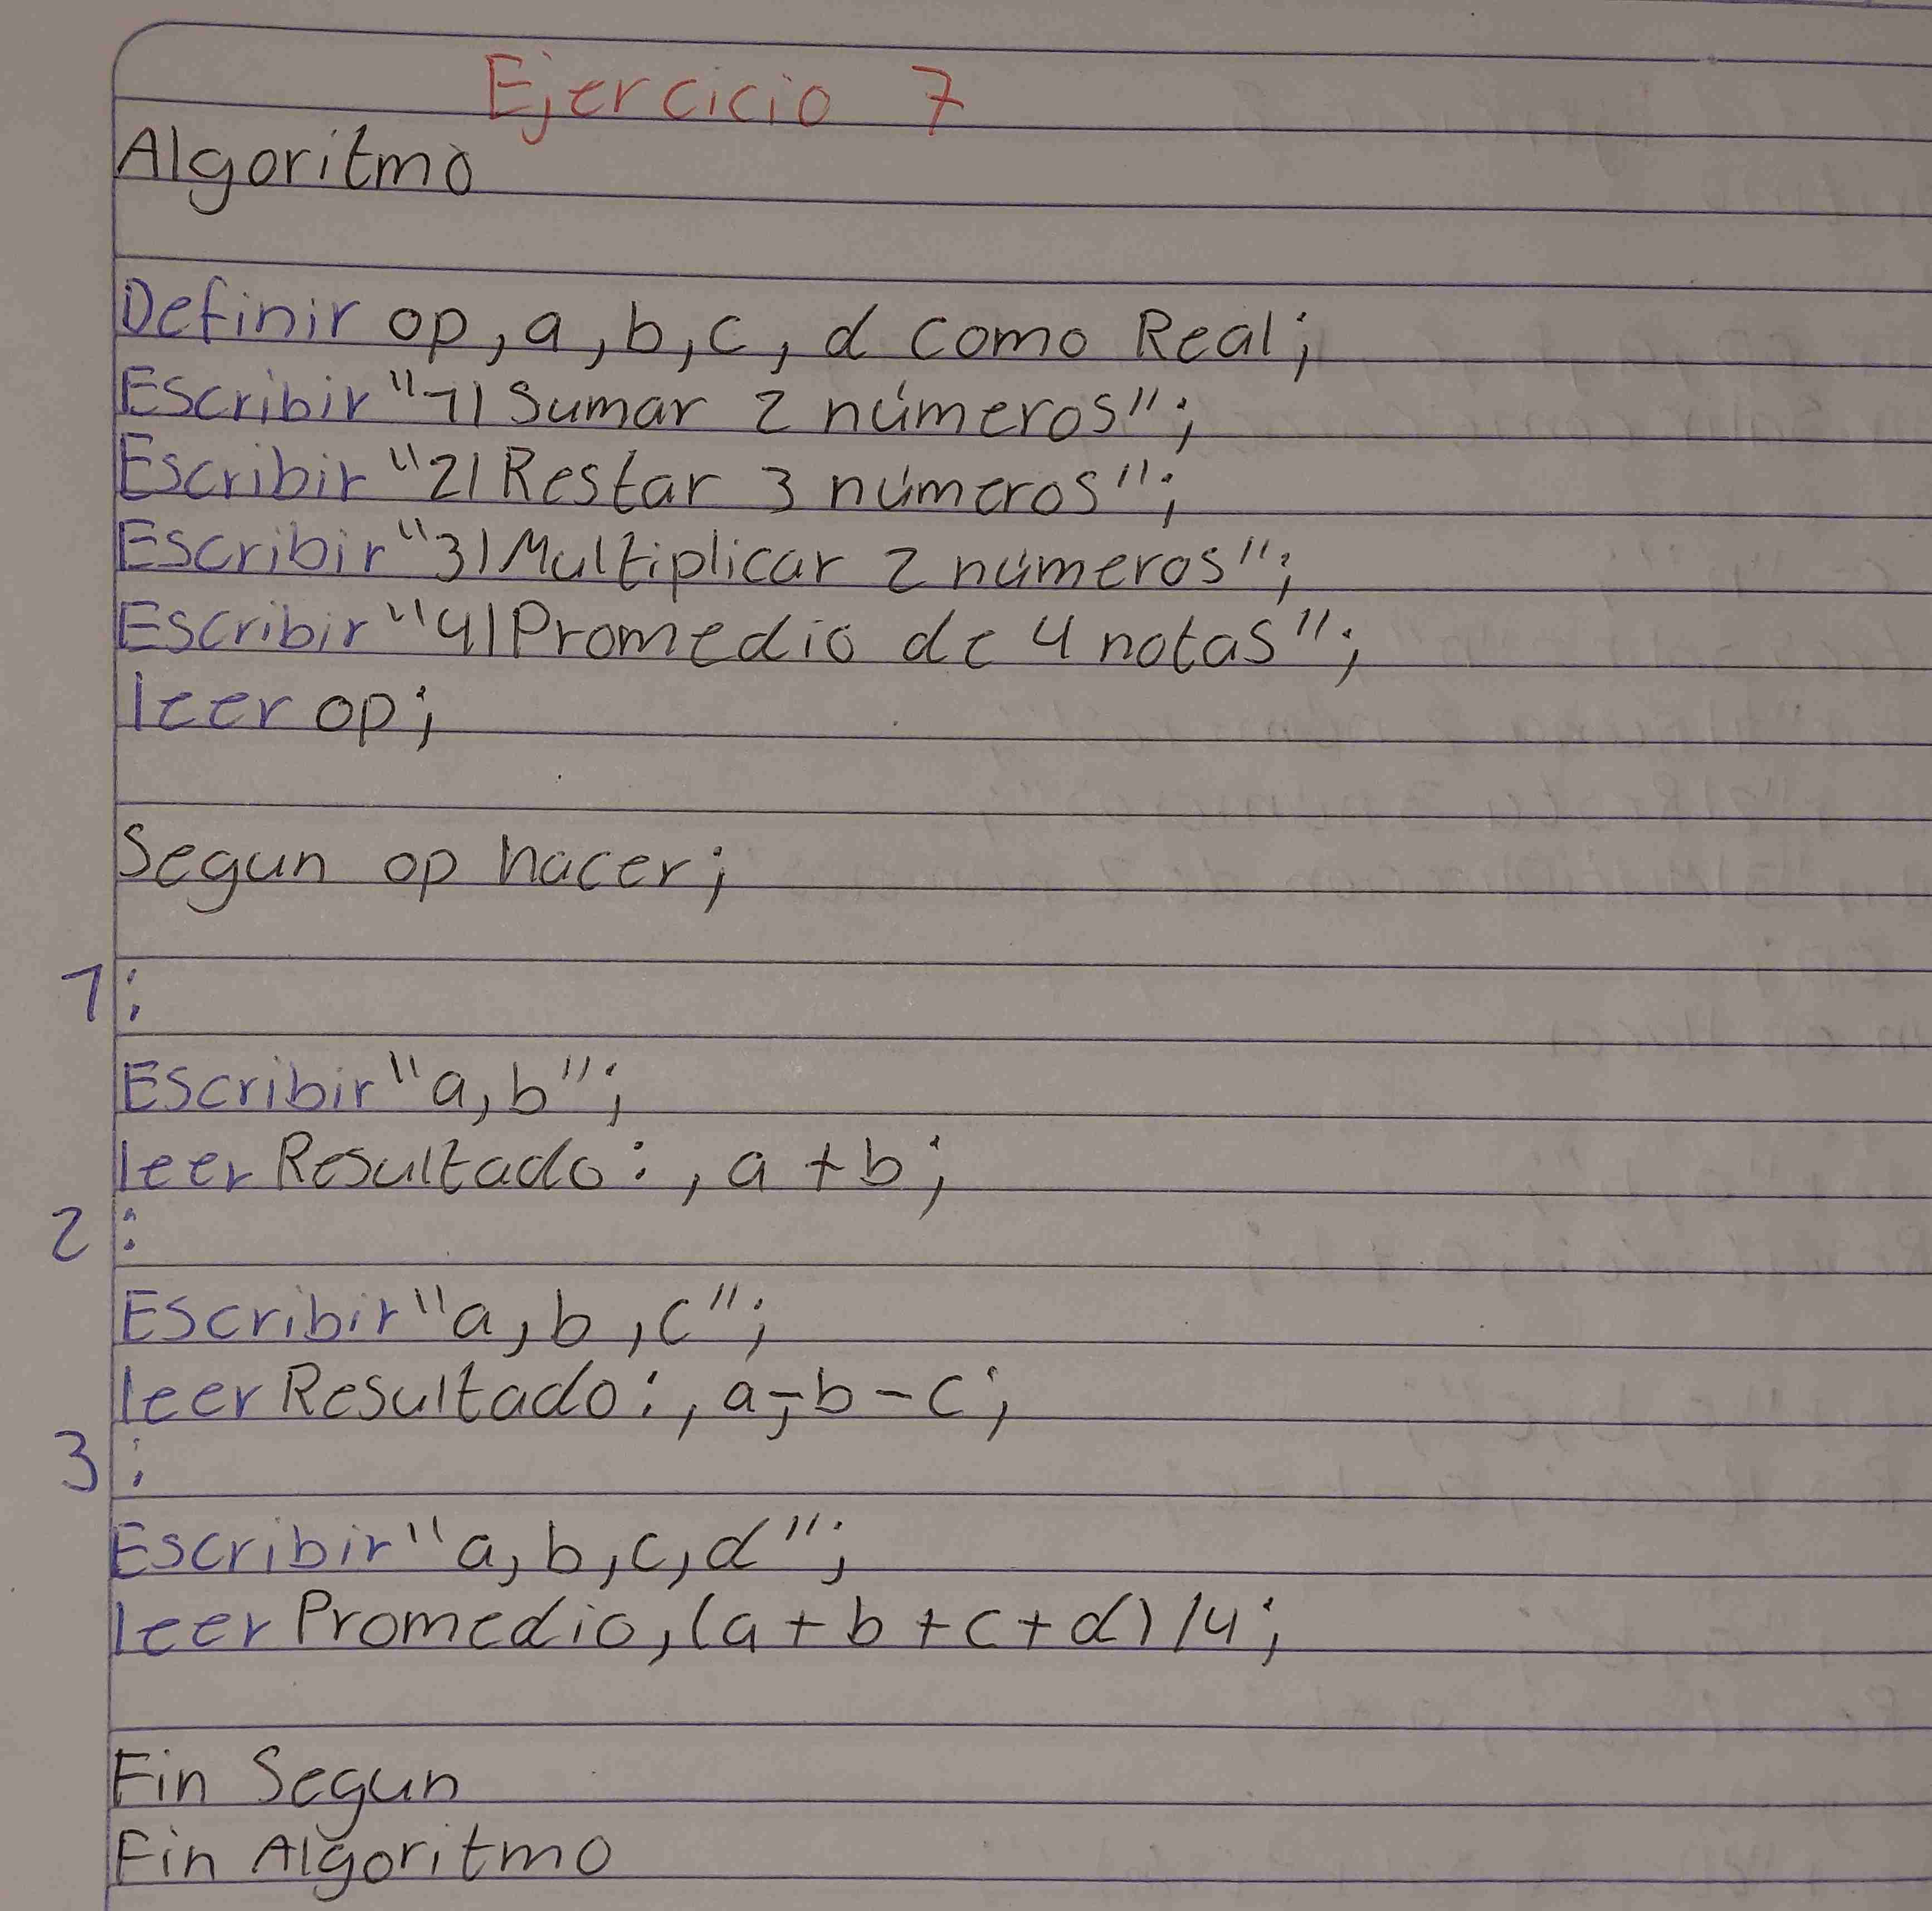 Ejercicio 7
Algoritmo
Definir op, a, b, c, d como Real;
Escribir "1) Sumar 2 números";
Escribir "2) Restar 3 números";
Escribir "3) Multiplicar 2 números";
Escribir "4) Promedio de 4 notas";
leer op;
Segun op hacer;
1:
Escribir "a, b";
leer Resultado:, a + b;
2:
Escribir "a, b, c";
leer Resultado:, a - b - c;
3:
Escribir "a, b, c, d";
leer Promedio, (a + b + c + d) /4;
Fin Segun
Fin Algoritmo